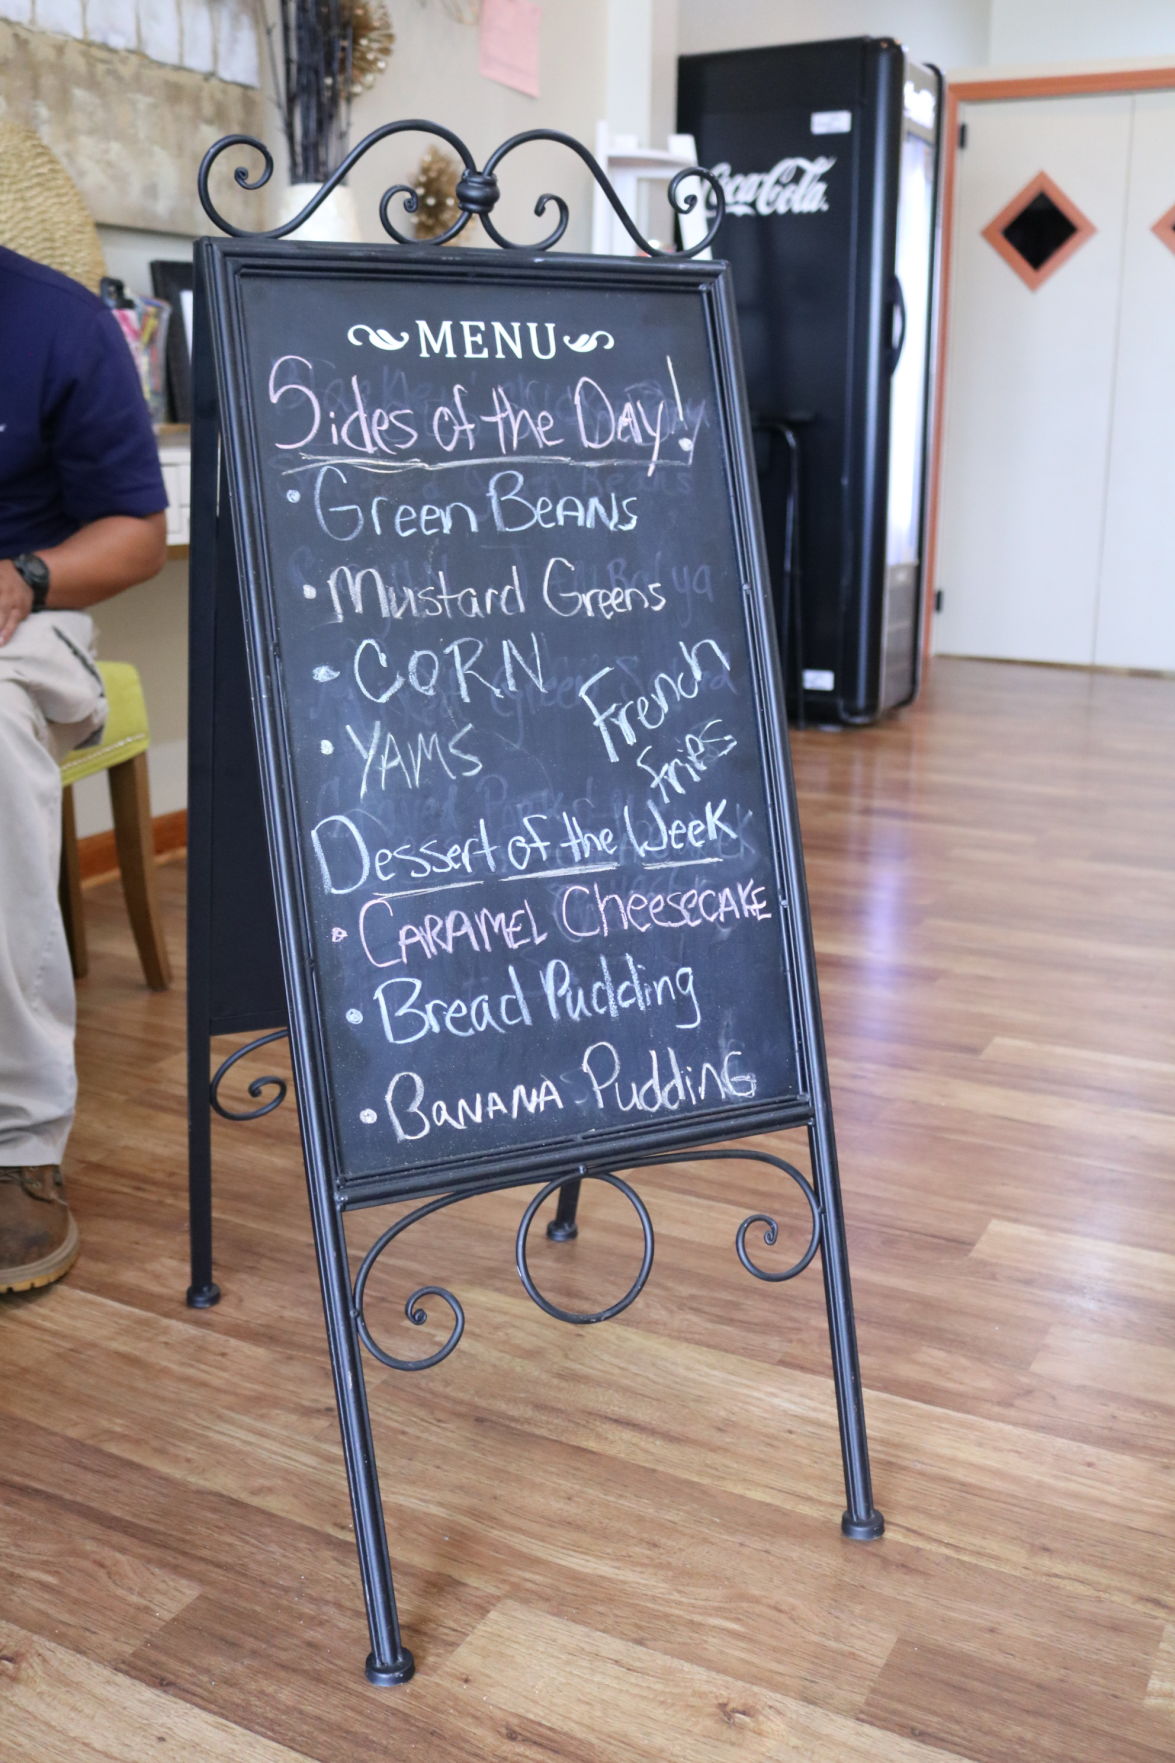 MENU
Sides of the Day!
• Green BeANS
• Mustard Greens
• CORN
• YAMS
French
fries
Dessert of the Week
• CARAMEL CheesecAKE
• Bread Pudding
• BaNANA PuddinG
Coca-Cola